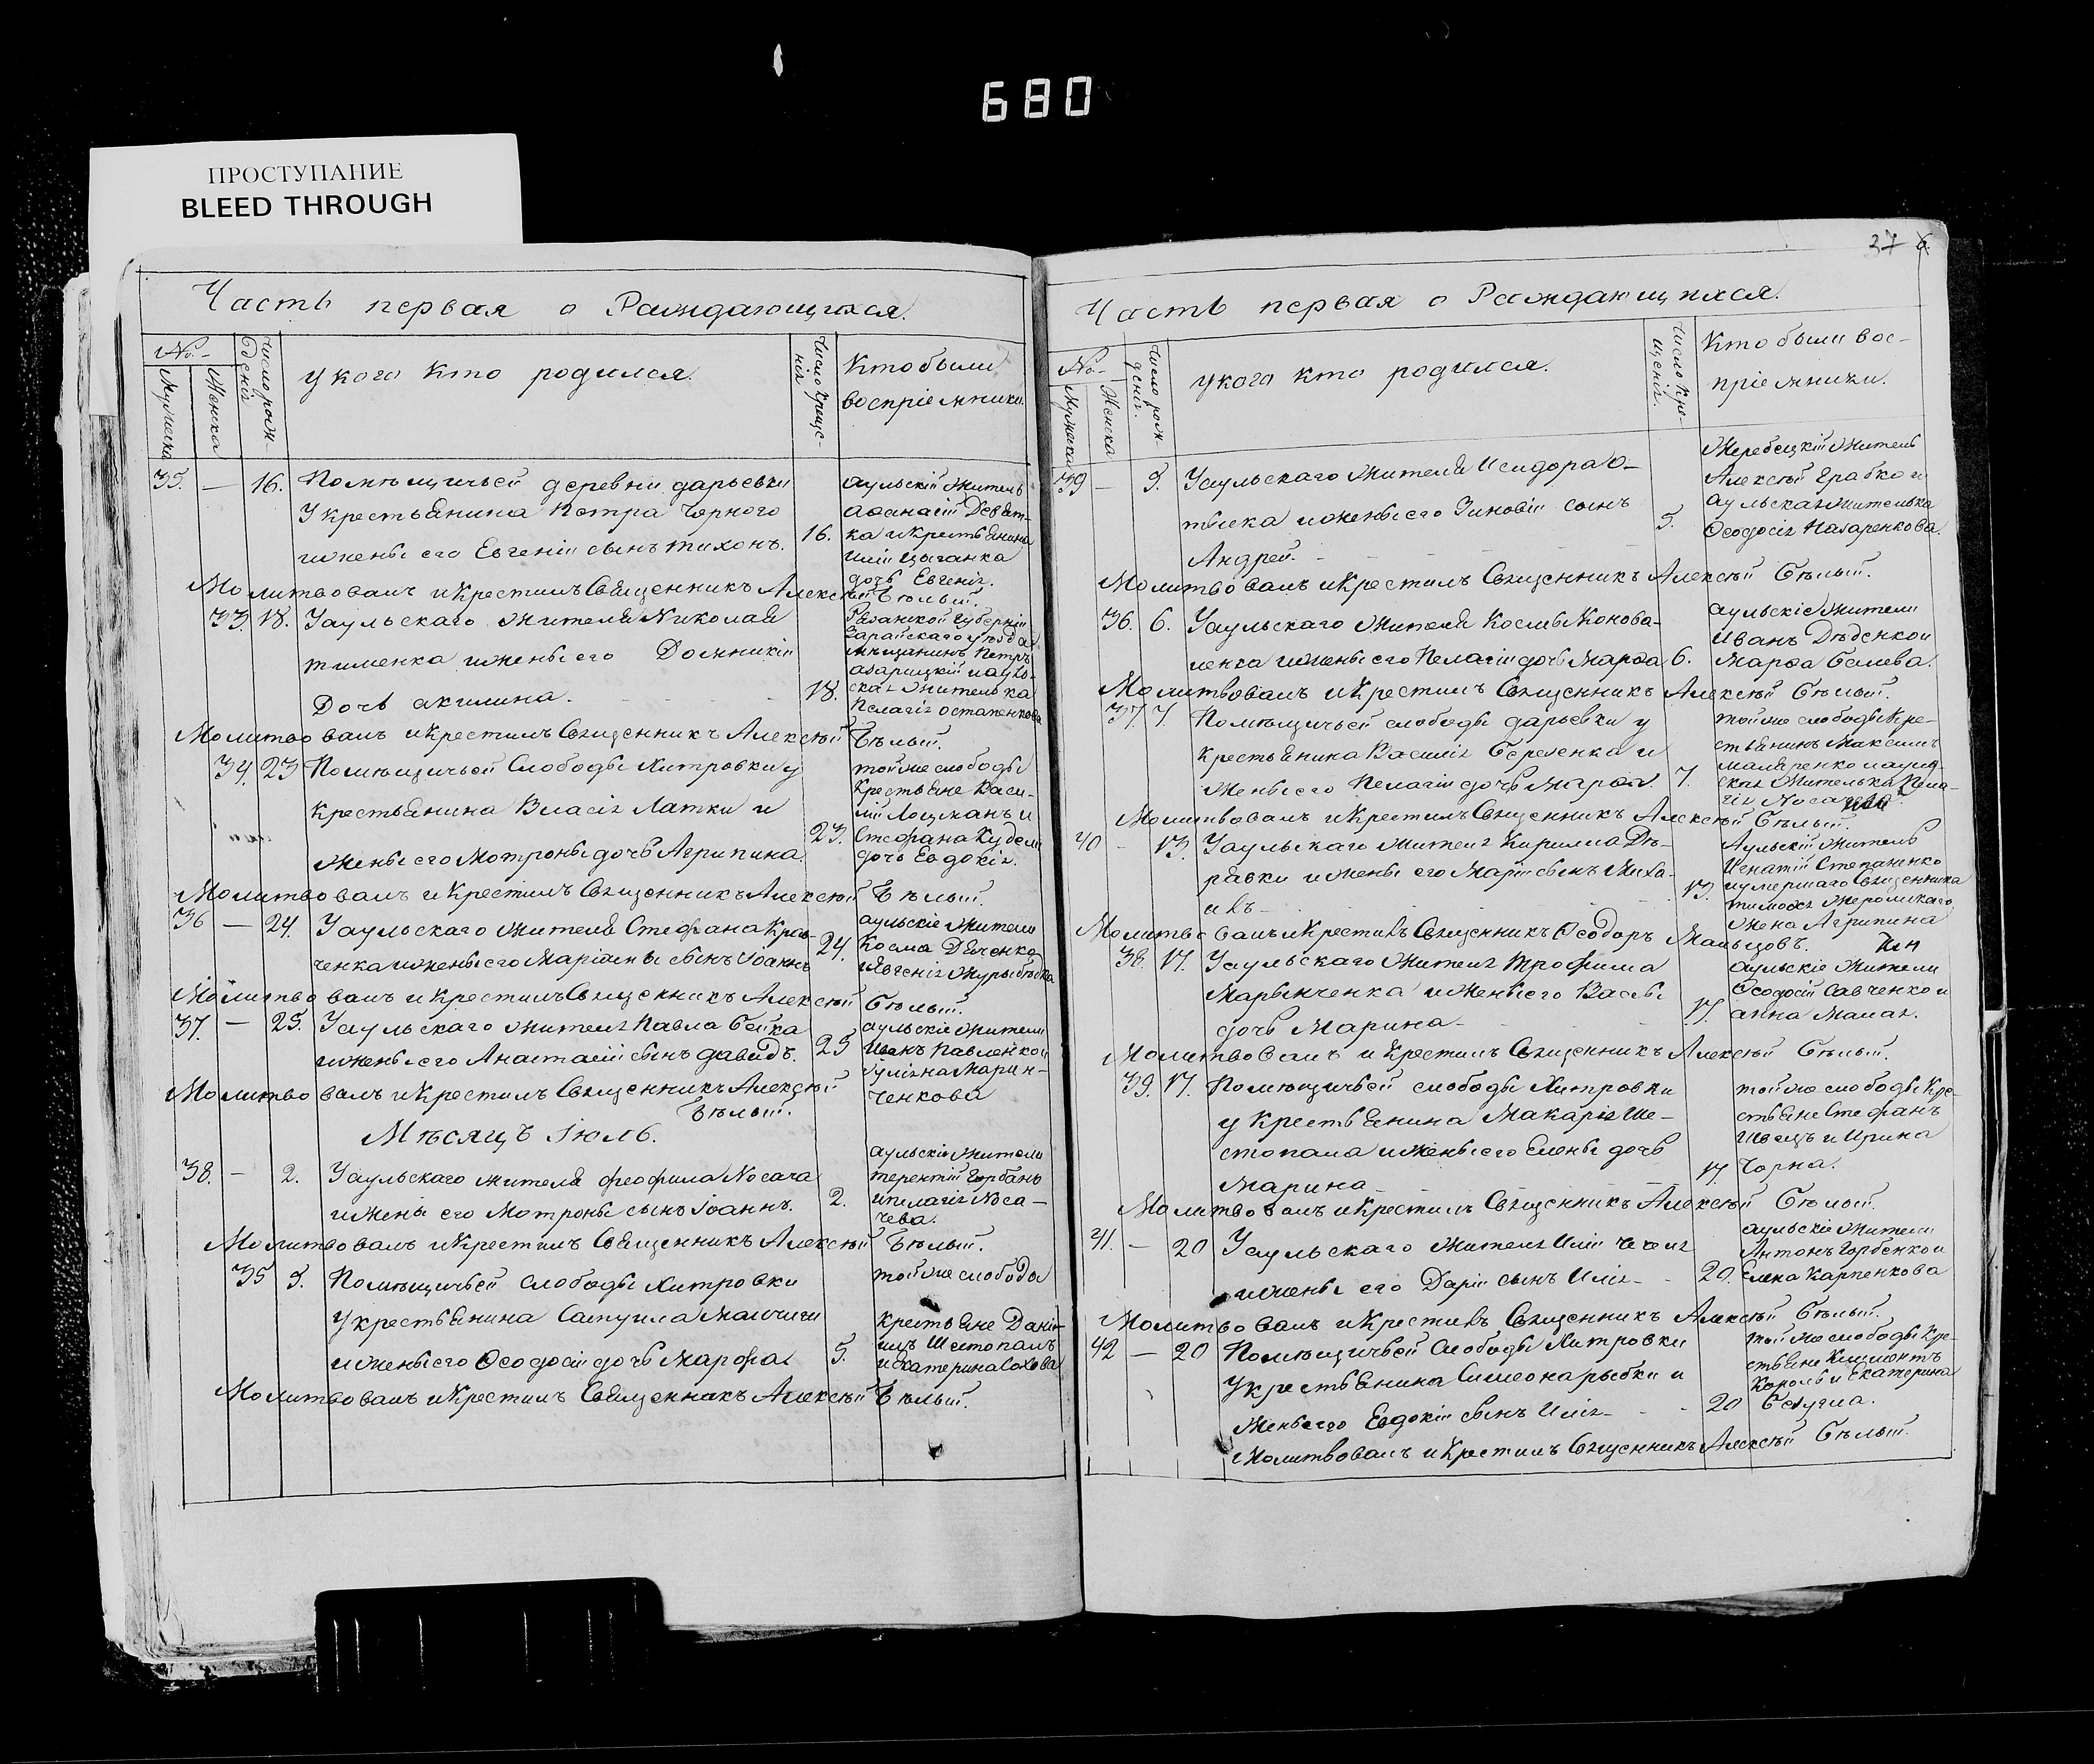 680
ПРОСТУПАНИЕ
BLEED THROUGH
Часть первая о Раждающихся.
No.
Мужеска
Женска
Число рож-
денія
у кого кто родился.
Число Креще-
нія
Кто были
воспріемники.
35. — 16. Помѣщичьей деревни дарьевки
У крестьянина Петра Чорного
и жены его Евгеніи сынъ тихонъ. 16.
аульскій житель
Аѳанасій Девят-
ка и крестьянина
Иліи Цыганка
дочь Евгенія.
Молитвовалъ и Крестилъ Священникъ Алексѣй Бѣлый.
33. 18. У аульскаго жителя Николая
тименка и жены его Домникіи
Дочь акилина. 18.
Рязанской Губерніи
Зарайскаго уѣзда
мѣщанинъ Петръ
азарицкій и ауль-
ская жителька
Пелагія остапенкова
Молитвовалъ и Крестилъ Священникъ Алексѣй Бѣлый.
34. 23 Помѣщичьей Слободы Хитровки у
крестьянина Власія Латки и
жены его Мотроны дочь Агрипина. 23.
той же слободы
Крестьяне Васи-
лій Лошканъ и
Стефана Кубели
дочь Евдокія.
Молитвовалъ и Крестилъ Священникъ Алексѣй Бѣлый.
36 — 24. У аульскаго жителя Стефана Крав-
ченка и жены его Маріаны сынъ Іоаннъ 24.
аульскіе жители
Косма Дяченко
и Евгенія Журыбѣдка
Молитвовалъ и Крестилъ Священникъ Алексѣй Бѣлый.
37. — 25. У аульскаго жителя Павла Бойка
и жены его Анастасіи сынъ давидъ. 25
аульскіе жители
Иванъ Павленко и
Улiяна Марин-
ченкова
Молитвовалъ и Крестилъ Священникъ Алексѣй
Бѣлый.
Мѣсяцъ Іюль.
38. — 2. У аульскаго жителя феофила Носача
и жены его Мотроны сынъ Іоаннъ. 2.
аульскіе жители
терентій Горбань
и пелагія Носа-
чева.
Молитвовалъ и Крестилъ Священникъ Алексѣй Бѣлый.
35 5. Помѣщичьей слободы Хитровки
У крестьянина Самуила Маичиги
и жены его Ѳеодосіи дочь Марфа 5.
той же слободы
крестьяне Дані-
илъ Шестопалъ
и Екатерина Сохова
Молитвовалъ и Крестилъ Священникъ Алексѣй Бѣлый.
37
Часть первая о Раждающихся.
No.
Мужеска
Женска
Число рож-
денія.
у кого кто родился.
Число Кре-
щенія.
Кто были вос-
пріемники.
39 — 5. У аульскаго жителя Исидора О-
тыска и жены его Зиновіи сынъ
Андрей. 5.
Жеребецкій житель
Алексѣй Грабко и
аульская жителька
Ѳеодосія Назаренкова.
Молитвовалъ и Крестилъ Священникъ Алексѣй Бѣлый.
36. 6. У аульскаго жителя Космы Конова-
ленка и жены его Пелагіи дочь Марѳа 6.
аульскіе жители
Иванъ Дѣденко и
Марѳа Балева.
Молитвовалъ и Крестилъ Священникъ Алексѣй Бѣлый.
37. 7. Помѣщичьей слободы дарьевки у
крестьянина Василія Березенка и
жены его Пелагіи дочь Марѳа. 7.
той же слободы кре-
стьянинъ Максимъ
маляренко и ауль-
ская жителька Пела-
гія Носачева.
Молитвовалъ и Крестилъ Священникъ Алексѣй Бѣлый.
40 — 13. У аульскаго жителя Кирилла Дѣ-
равки и жены его Маріи сынъ Миха-
илъ 13.
Аульскій житель
Игнатій Степаненко
и умершаго Священника
тимоѳея Жеромскаго
жена Агрипина
Молитвовалъ и Крестилъ Священникъ Ѳеодоръ Мальцовъ.
38. 17. У аульскаго жителя трофима
Марынченка и жены его Вассы
дочь Марина 17.
аульскіе жители
Ѳеодосій Савченко и
анна Малая.
Молитвовалъ и Крестилъ Священникъ Алексѣй Бѣлый.
39. 17. Помѣщичьей слободы Хитровки
у крестьянина Макарія Ше-
стопала и жены его Елены дочь
Марина 17.
той же слободы Кре-
стьяне Стефанъ
Швецъ и Ирина
Чорна.
Молитвовалъ и Крестилъ Священникъ Алексѣй Бѣлый.
41. — 20 У аульскаго жителя Иліи Чехия
и жены его Даріи сынъ Илія 20.
аульскіе жители
Антонъ Горбенко и
Елена Карпенкова
Молитвовалъ и Крестилъ Священникъ Алексѣй Бѣлый.
42 — 20 Помѣщичьей Слободы Хитровки
У крестьянина Симеона рыбки и
жены его Евдокіи сынъ Илія 20
той же слободы Кре-
стьяне Климентъ
Король и Екатерина
Белугла.
Молитвовалъ и Крестилъ Священникъ Алексѣй Бѣлый.